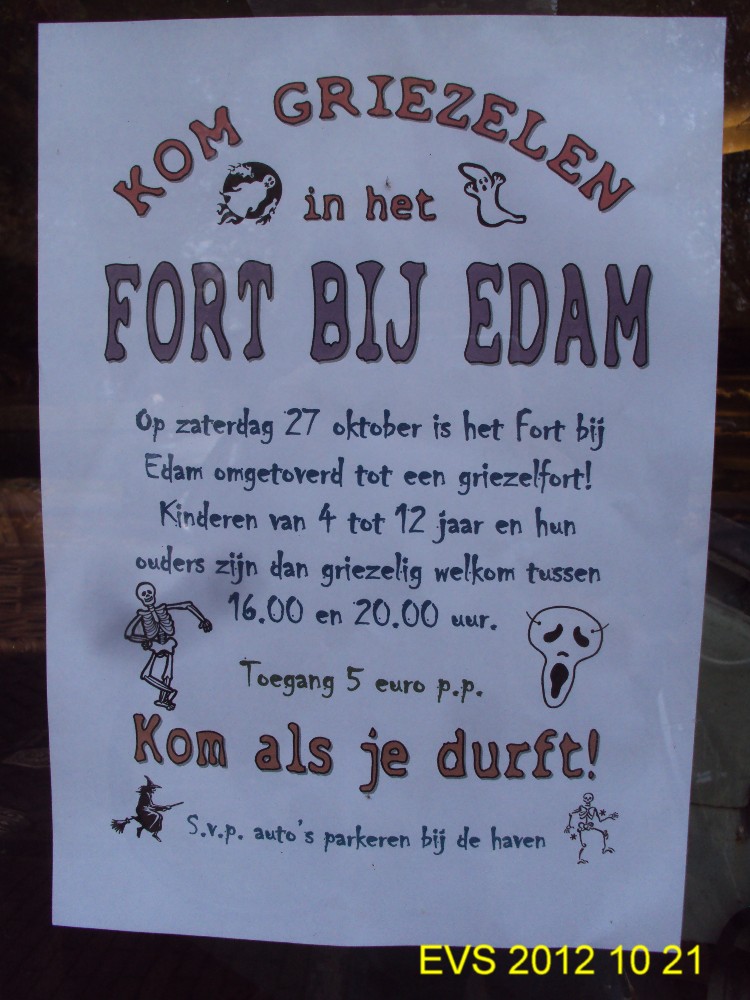 KOM GRIEZELEN
in het
FORT BIJ EDAM
Op zaterdag 27 oktober is het Fort bij
Edam omgetoverd tot een griezelfort!
Kinderen van 4 tot 12 jaar en hun
ouders zijn dan griezelig welkom tussen
16.00 en 20.00 uur.
Toegang 5 euro p.p.
Kom als je durft!
S.v.p. auto's parkeren bij de haven
EVS 2012 10 21